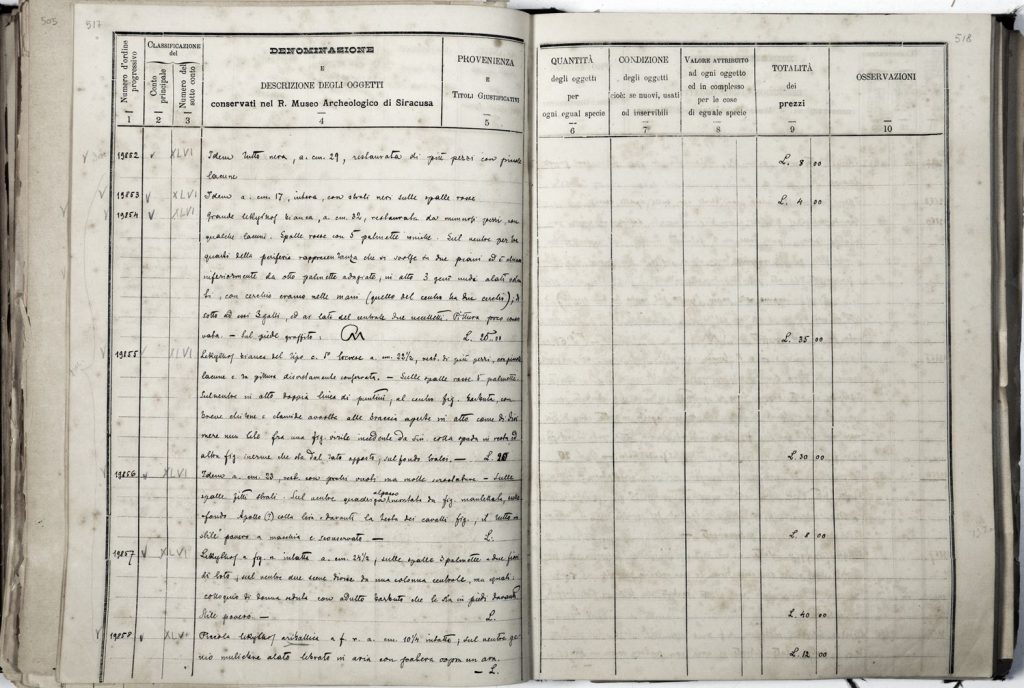 505
517
518
Numero d'ordine progressivo
CLASSIFICAZIONE del
Conto principale
Numero del sotto conto
DENOMINAZIONE
E
DESCRIZIONE DEGLI OGGETTI
conservati nel R. Museo Archeologico di Siracusa
PROVENIENZA
E
TITOLI GIUSTIFICATIVI
1 2 3 4 5
QUANTITÀ
degli oggetti
per
ogni egual specie
6
CONDIZIONE
degli oggetti
cioè: se nuovi, usati
od inservibili
7
VALORE ATTRIBUITO
ad ogni oggetto
od in complesso
per le cose
di eguale specie
8
TOTALITÀ
dei
prezzi
9
OSSERVAZIONI
10
19852 XLVI Idem tutta nera, a. cm. 29, restaurata di più pezzi con piccole
lacune
L. 8 00
19853 XLVI Idem a. cm. 17, intera, con strali neri sulle spalle rosse
L. 4 00
19854 XLVI Grande lekythos bianca, a. cm. 32, restaurata da numerosi pezzi, con
qualche lacuna. Spalle rosse con 5 palmette. Sul ventre per tre
quarti della periferia rappresentanza che si svolge in due piani ed è chiusa
inferiormente da otto palmette; in alto 3 geni nudi alati
con cerchio in mano nelle mani (quello del centro ha due cerchi), di
sotto ad essi 3 galli, ed ai lati del centrale due uccelletti. Pittura poco conser
vata. - Sul piede graffito:
L. 35 00
19855 XLVI Lekythos bianca del tipo c. s. a. cm. 22½, rest. di più pezzi, con piccole
lacune e la pittura discretamente conservata. - Sulle spalle rosse 5 palmette.
Sul ventre in alto doppia linea di puntini, al centro fig. barbuta, con
breve chitone e clamide avvolta alle braccia aperte in alto come di
fra una fig. virile incedente da sin. colla spada in resta ed
altra fig. inerme che sta dal lato opposto; sul fondo tralci. - L. 20
L. 30 00
19856 XLVI Idem a. cm. 23, rest. con pochi vuoti ma molte - Sulle
spalle fitti strali. Sul ventre quadriga montata da fig. mantellata, nel
fondo Apollo (?) colla lira e davanti la testa dei cavalli fig., il tutto in
stile povero a macchia e sconservato - L.
L. 8 00
19857 XLVI Lekythos a fig. n. intatta a. cm. 24½, sulle spalle 3 palmette e due fiori
di loto, sul ventre due scene divise da una colonna centrale, ma eguali:
colloquio di donna seduta con adulto barbuto che le sta in piedi davanti
Stile povero. - L.
L. 40 00
19858 XLVI Piccola lekythos a f. r. a. cm. 10¼ intatta; sul ventre ge-
nio muliebre alato librato in aria con phalera sopra un ara.
- L.
L. 12 00